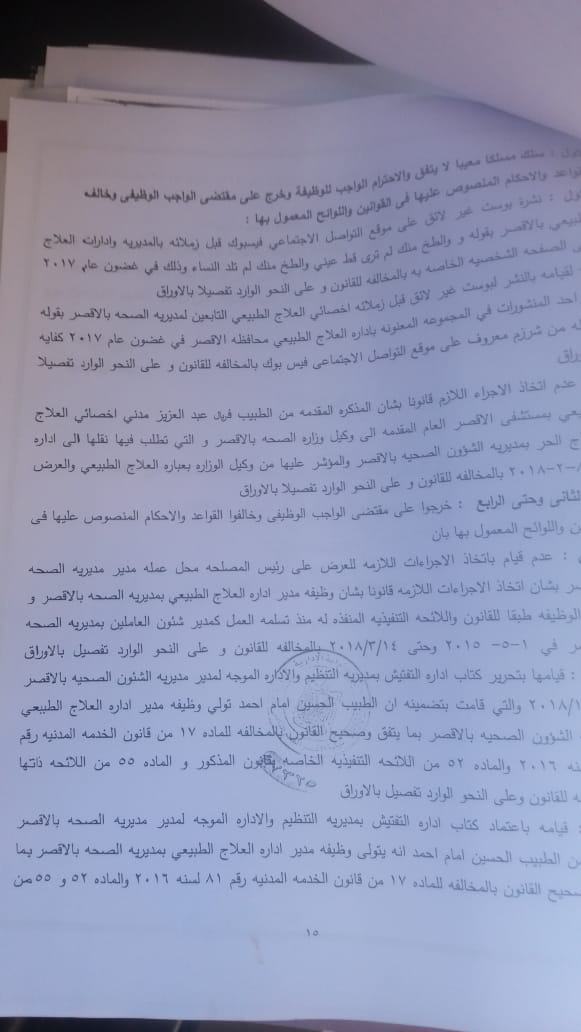 : سلك مسلكا معيبا لا يتفق والاحترام الواجب للوظيفة وخرج على مقتضى الواجب الوظيفى وخالفه
القواعد والاحكام المنصوص عليها فى القوانين واللوائح المعمول بها :
: نشرة بوست غير لائق على موقع التواصل الاجتماعي فيسبوك قبل زملائه بالمديريه وادارات العلاج
الطبيعي بالاقصر بقوله و والطخ منك لم ترى قط عيني والطخ منك لم تلد النساء وذلك في غضون عام ٢٠١٧
الصفحه الشخصيه الخاصه به بالمخالفه للقانون و على النحو الوارد تفصيلا بالاوراق
لقيامه بالنشر لبوست غير لائق قبل زملائه اخصائي العلاج الطبيعي التابعين لمديريه الصحه بالاقصر بقوله
احد المنشورات في المجموعه المعنونه باداره العلاج الطبيعي محافظه الاقصر في غضون عام ٢٠١٧ كفايه
من شرزم معروف على موقع التواصل الاجتماعى فيس بوك بالمخالفه للقانون و على النحو الوارد تفصيلا
عدم اتخاذ الاجراء اللازم قانونا بشان المذكره المقدمه من الطبيب فريال عبد العزيز مدني اخصائي العلاج
بمستشفى الاقصر العام المقدمه الى وكيل وزاره الصحه بالاقصر و التي تطلب فيها نقلها الى اداره
الحر بمديريه الشؤون الصحيه بالاقصر والمؤشر عليها من وكيل الوزاره بعباره العلاج الطبيعي والعرض
-٢-٢٠١٨ بالمخالفه للقانون و على النحو الوارد تفصيلا بالاوراق
الثانى وحتى الرابع : خرجوا على مقتضى الواجب الوظيفى وخالفوا القواعد والاحكام المنصوص عليها فى
واللوائح المعمول بها بان
: عدم قيام باتخاذ الاجراءات اللازمه للعرض على رئيس المصلحه محل عمله مدير مديريه الصحه
بشان اتخاذ الاجراءات اللازمه قانونا بشان وظيفه مدير اداره العلاج الطبيعي بمديريه الصحه بالاقصر و
الوظيفه طبقا للقانون واللائحه التنفيذيه المنفذه له منذ تسلمه العمل كمدير شئون العاملين بمديريه الصحه
في ١-٥- ٢٠١٥ وحتى ٢٠١٨/٣/١٤ بالمخالفه للقانون و على النحو الوارد تفصيل بالاوراق
: قيامها بتحرير كتاب اداره التفتيش بمديريه التنظيم والاداره الموجه لمدير مديريه الشئون الصحيه بالاقصر
والتي قامت بتضمينه ان الطبيب الحسين امام احمد تولي وظيفه مدير اداره العلاج الطبيعي
الشؤون الصحيه بالاقصر بما يتفق وصحيح القانون بالمخالفه للماده ١٧ من قانون الخدمه المدنيه رقم
٢٠١٦ والماده ٥٢ من اللائحه التنفيذيه الخاصه بقانون المذكور و الماده ٥٥ من اللائحه ذاتها
للقانون وعلى النحو الوارد تفصيل بالاوراق
: قيامه باعتماد كتاب اداره التفتيش بمديريه التنظيم والاداره الموجه لمدير مديريه الصحه بالاقصر
الطبيب الحسين امام احمد انه يتولى وظيفه مدير اداره العلاج الطبيعي بمديريه الصحه بالاقصر بما
القانون بالمخالفه للماده ١٧ من قانون الخدمه المدنيه رقم ٨١ لسنه ٢٠١٦ والماده ٥٢ و ٥٥ من
١٥